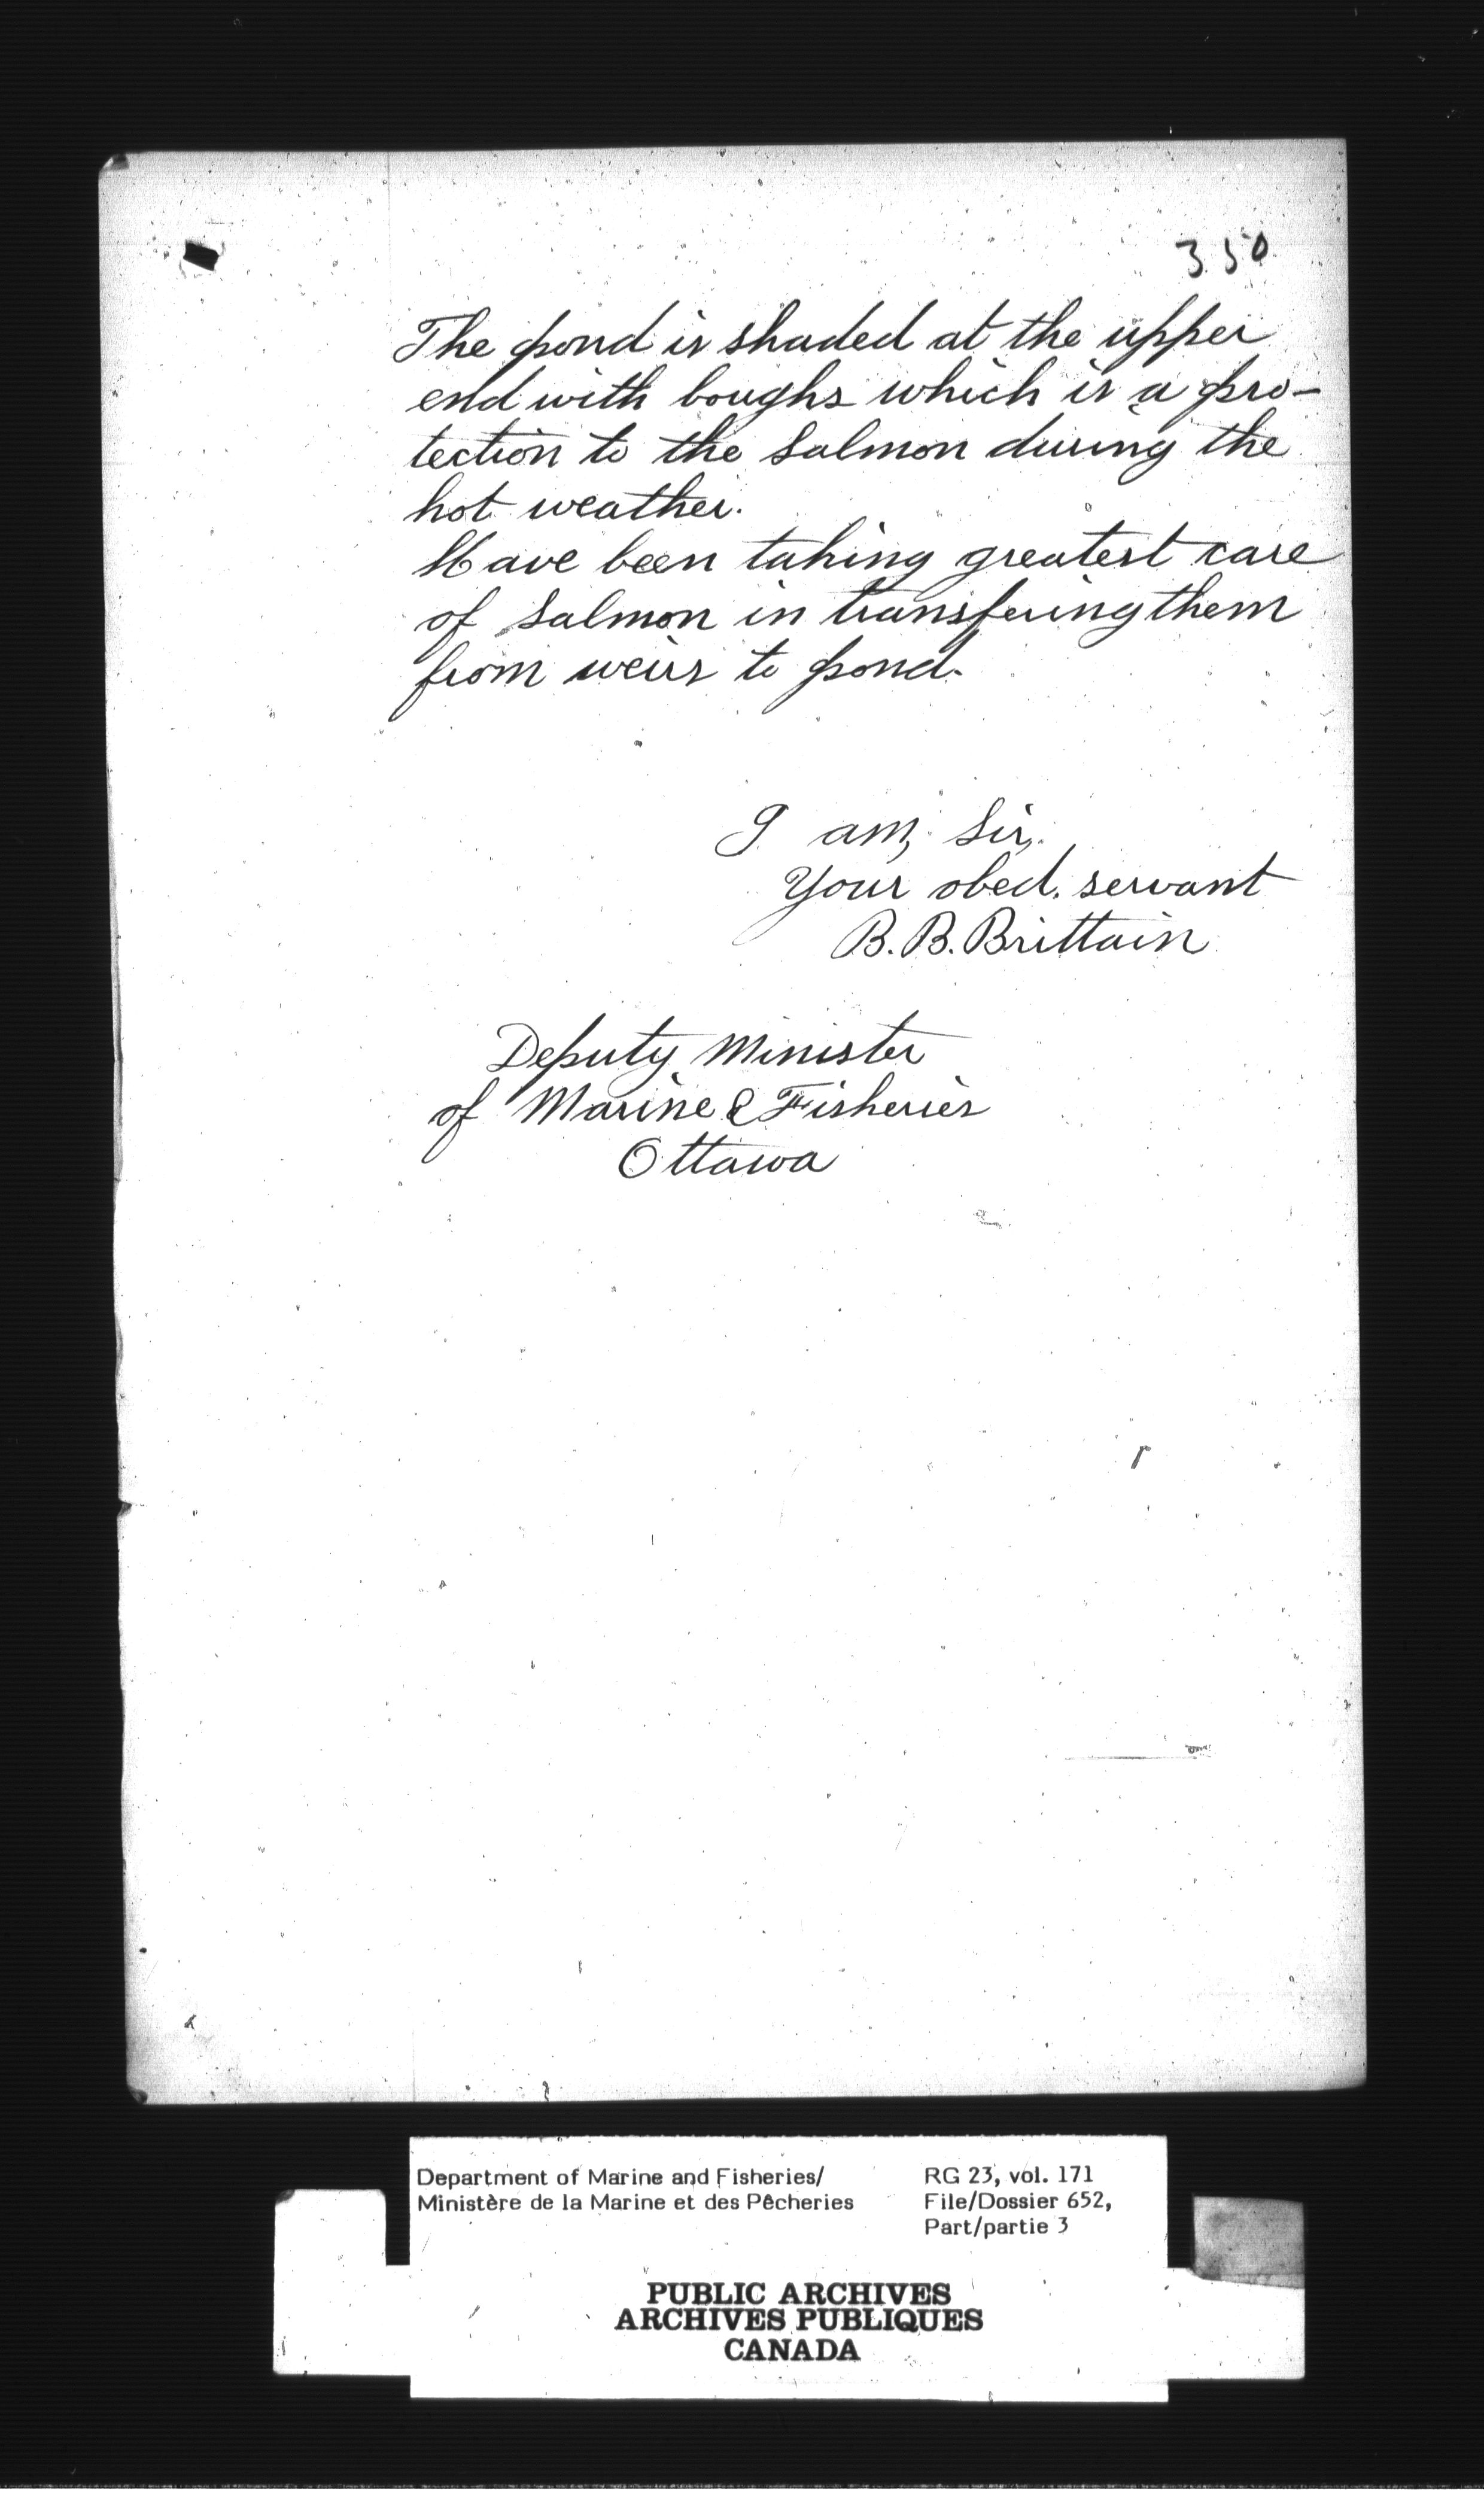 350
The pond is shaded at the upper
end with boughs which is a pro-
tection to the salmon during the
hot weather.
Have been taking greatest care
of salmon in transfering them
from weirs to pond.
I am, Sir,
Your obed. servant
B. B. Brittain
Deputy Minister
of Marine & Fisheries
Ottawa
Department of Marine and Fisheries/
Ministère de la Marine et des Pêcheries
RG 23, vol. 171
File/Dossier 652,
Part/partie 3
PUBLIC ARCHIVES
ARCHIVES PUBLIQUES
CANADA